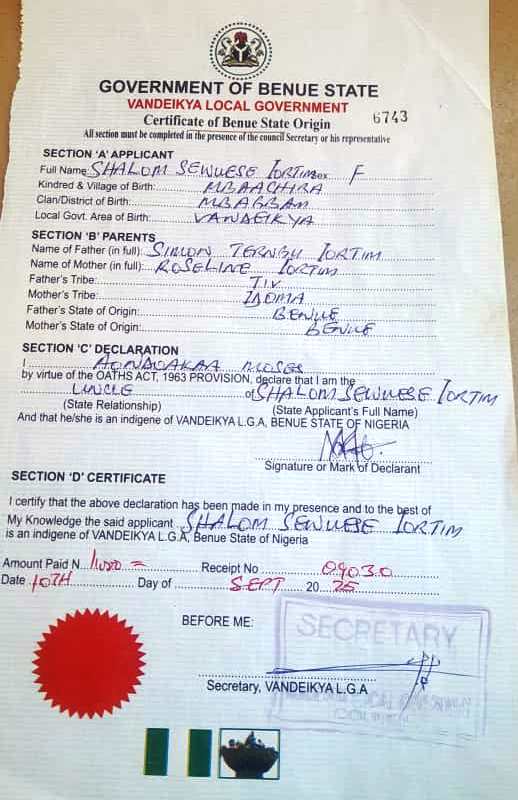 GOVERNMENT OF BENUE STATE
VANDEIKYA LOCAL GOVERNMENT
Certificate of Benue State Origin 6743
All section must be completed in the presence of the council Secretary or his representative
SECTION 'A' APPLICANT
Full Name SHALOM SEWUESE IORTIM Sex F
Kindred & Village of Birth: MBAACHIRA
Clan/District of Birth: MBAGBAM
Local Govt. Area of Birth: VANDEIKYA
SECTION 'B' PARENTS
Name of Father (in full): SIMON TERNGU IORTIM
Name of Mother (in full): ROSELINE IORTIM
Father's Tribe: TIV
Mother's Tribe: IDOMA
Father's State of Origin: BENUE
Mother's State of Origin: BENUE
SECTION 'C' DECLARATION
I AONDOAKAA MOSES
by virtue of the OATHS ACT, 1963 PROVISION, declare that I am the
UNCLE of SHALOM SEWUESE IORTIM
(State Relationship) (State Applicant's Full Name)
And that he/she is an indigene of VANDEIKYA L.G.A, BENUE STATE OF NIGERIA
Signature or Mark of Declarant
SECTION 'D' CERTIFICATE
I certify that the above declaration has been made in my presence and to the best of
My Knowledge the said applicant SHALOM SEWUESE IORTIM
is an indigene of VANDEIKYA L.G.A, Benue State of Nigeria
Amount Paid N Receipt No 09030
Date 10TH Day of SEPT 2025
BEFORE ME:
SECRETARY
Secretary, VANDEIKYA L.G.A